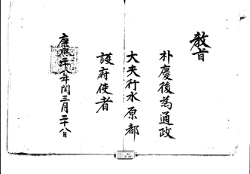 教旨
朴慶後為通政
大夫行水原都
護府使者
康熙十八年閏三月二十八日